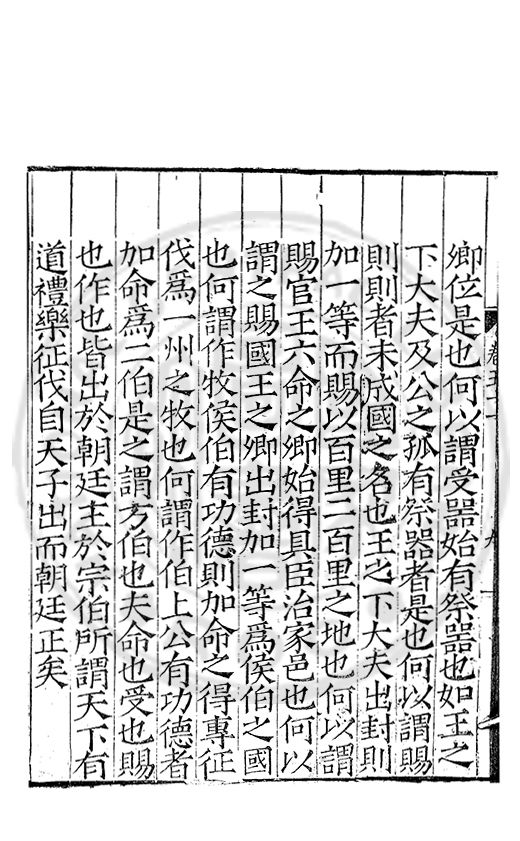 卿位是也何以謂受噐始有祭噐也如王之
下大夫及公之孤有祭器者是也何以謂賜
則則者未成國之名也王之下大夫出封則
加一等而賜以百里二百里之地也何以謂
賜官王六命之卿始得具臣治家邑也何以
謂之賜國王之卿出封加一等爲侯伯之國
也何謂作牧侯伯有功德則加命之得專征
伐爲一州之牧也何謂作伯上公有功德者
加命爲二伯是之謂方伯也夫命也受也賜
也作也皆出於朝廷主於宗伯所謂天下有
道禮樂征伐自天子出而朝廷正矣